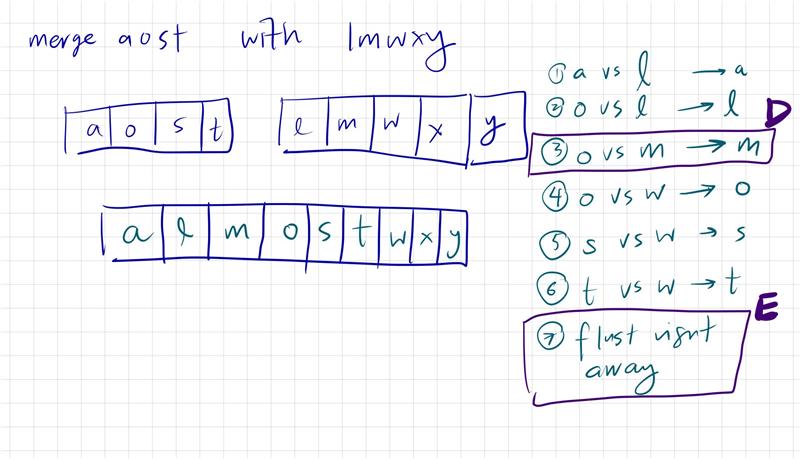 merge aost with lmwxy
a o s t
l m w x y
a l m o s t w x y
① a vs l → a
② o vs l → l
D
③ o vs m → m
④ o vs w → o
⑤ s vs w → s
⑥ t vs w → t
E
⑦ flust right
away